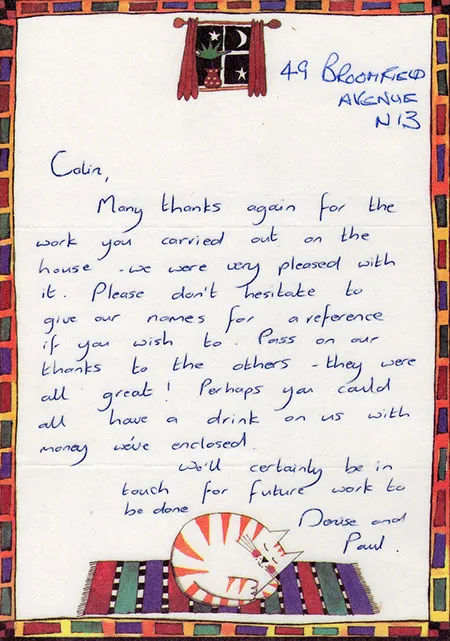 49 BROOMFIELD
AVENUE
N13
Colin,
Many thanks again for the
work you carried out on the
house - we were very pleased with
it. Please don't hesitate to
give our names for a reference
if you wish to. Pass on our
thanks to the others - they were
all great! Perhaps you could
all have a drink on us with
money we've enclosed.
We'll certainly be in
touch for future work to
be done
Denise and
Paul.